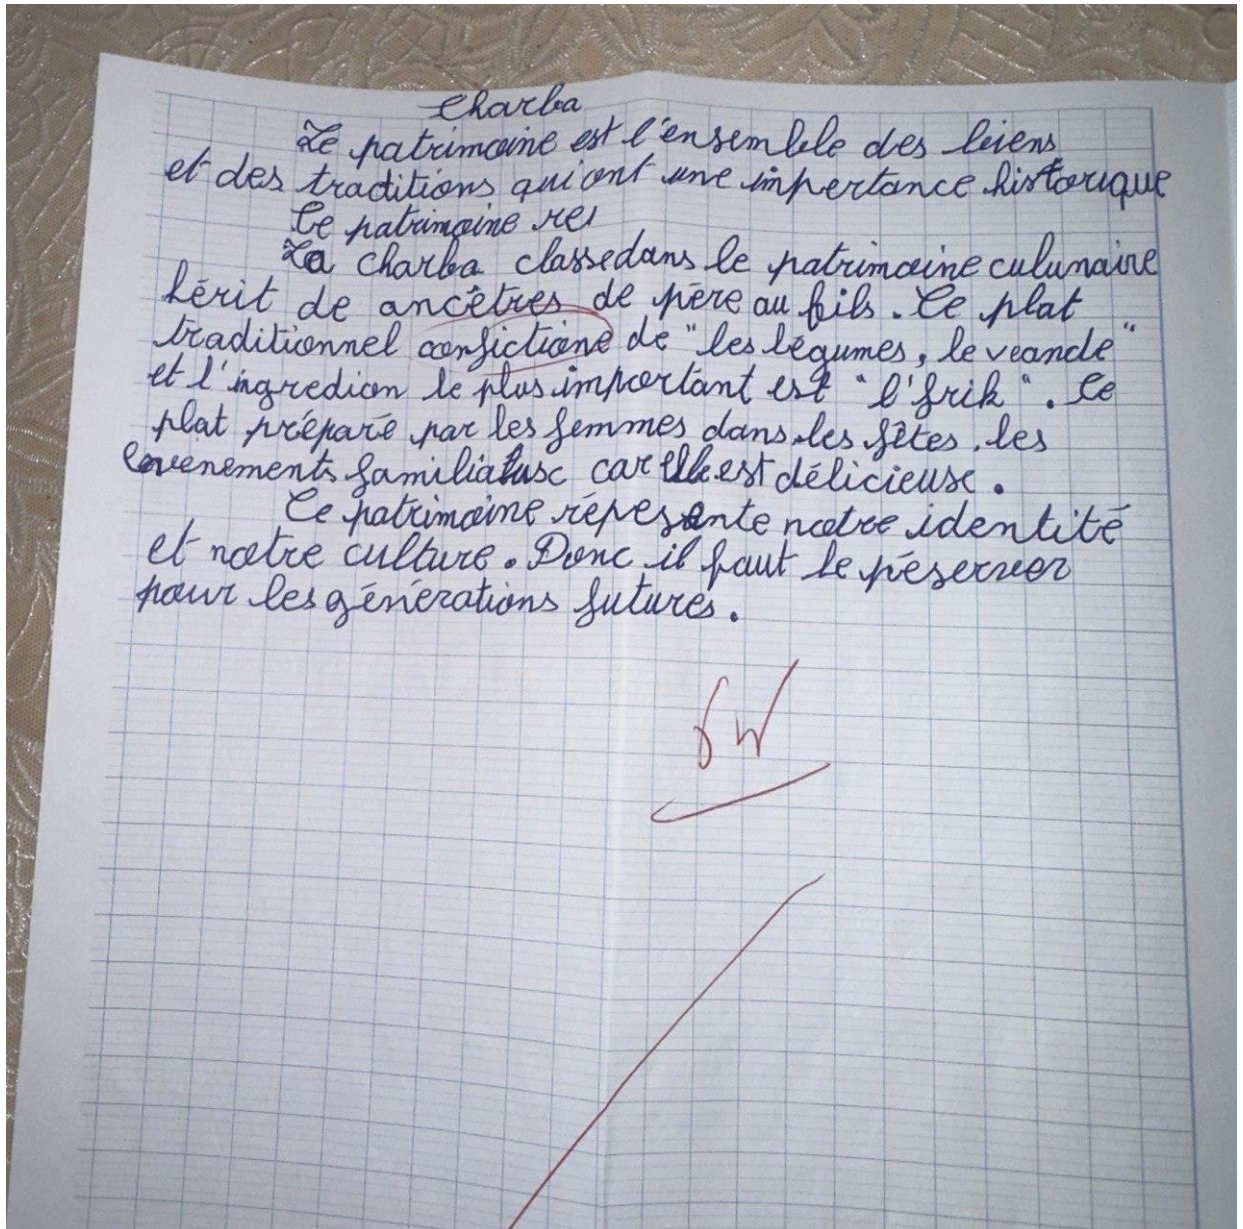 Charba
Le patrimoine est l'ensemble des biens
et des traditions qui ont une impertance historique
Ce patrimoine re
La charba classe dans le patrimoine culunaire
hérit de ancêtres de père au fils. Ce plat
traditionnel confictione de "les légumes, le veande"
et l'ingredion le plus important est "l'frik". Ce
plat préparé par les femmes dans les fêtes, les
evenements car elle est délicieuse.
Ce patrimoine répesente notre identité
et notre culture. Donc il faut le péserver
pour les générations futures.